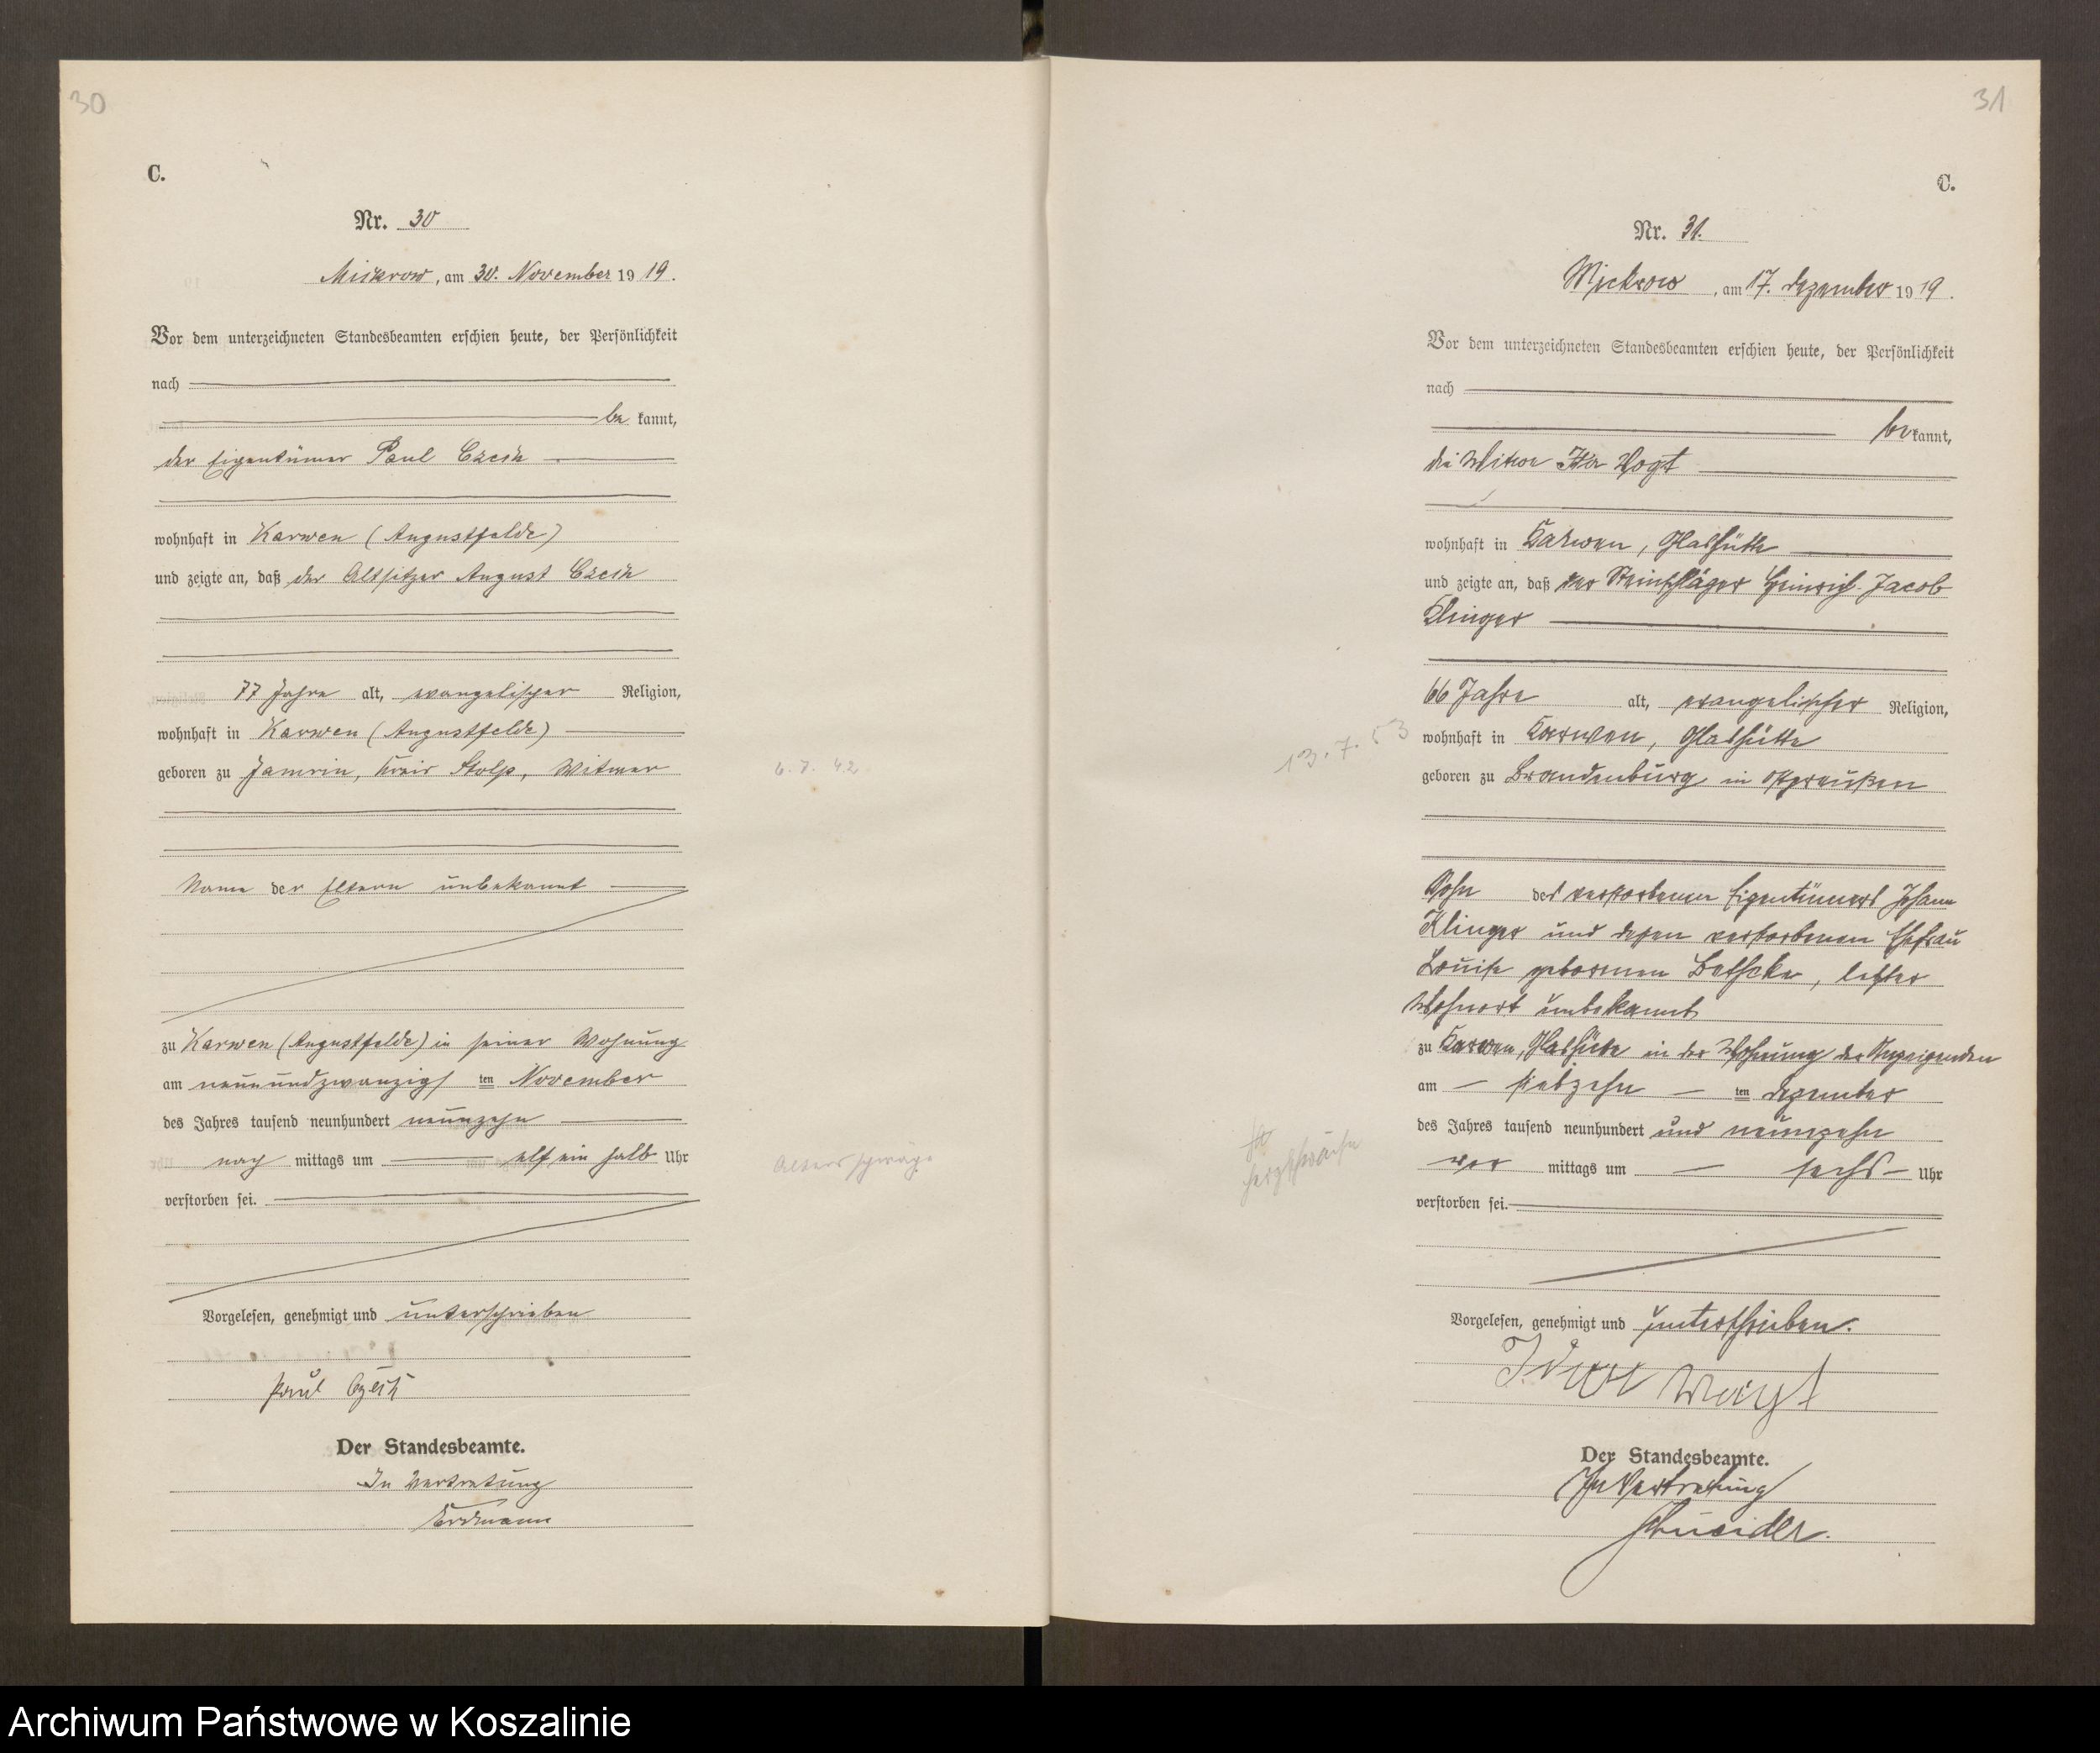 30
C.
Nr. 30
Mickrow, am 30. November 1919.
Vor dem unterzeichneten Standesbeamten erschien heute, der Persönlichkeit
nach
be kannt,
der Eigentümer Paul Czech
wohnhaft in Karwen (Augustfelde)
und zeigte an, daß der Altsitzer August Czech
77 Jahre alt, evangelischer Religion,
wohnhaft in Karwen (Augustfelde)
geboren zu Jamrin, Kreis Stolp, Witwer
6. 7. 42.
Name der Eltern unbekannt
zu Karwen (Augustfelde) in seiner Wohnung
am neunundzwanzigsten November
des Jahres tausend neunhundert neunzehn
nach mittags um elf ein halb Uhr
Altersschwäche
verstorben sei.
Vorgelesen, genehmigt und unterschrieben
Paul Czech
Der Standesbeamte.
In Vertretung
Erdmann
31
C.
Nr. 31.
Mickrow, am 17. Dezember 1919.
Vor dem unterzeichneten Standesbeamten erschien heute, der Persönlichkeit
nach
be kannt,
die Witwe Vogt
wohnhaft in Karwen, Glashütte
und zeigte an, daß der Steinschläger Heinrich Jacob
Klinger
66 Jahre alt, evangelischer Religion,
13. 7. 53
wohnhaft in Karwen, Glashütte
geboren zu Brandenburg in Ostpreußen
Sohn des verstorbenen Eigentümers Johann
Klinger und dessen verstorbenen Ehefrau
Louise geborenen Betschke, letzter
Wohnort unbekannt
zu Karwen, Glashütte in der Wohnung der Anzeigenden
am siebzehnten Dezember
des Jahres tausend neunhundert und neunzehn
vor mittags um sechs Uhr
Herzschwäche
verstorben sei.
Vorgelesen, genehmigt und unterschrieben.
Der Standesbeamte.
In Vertretung
Schneider.
Archiwum Państwowe w Koszalinie